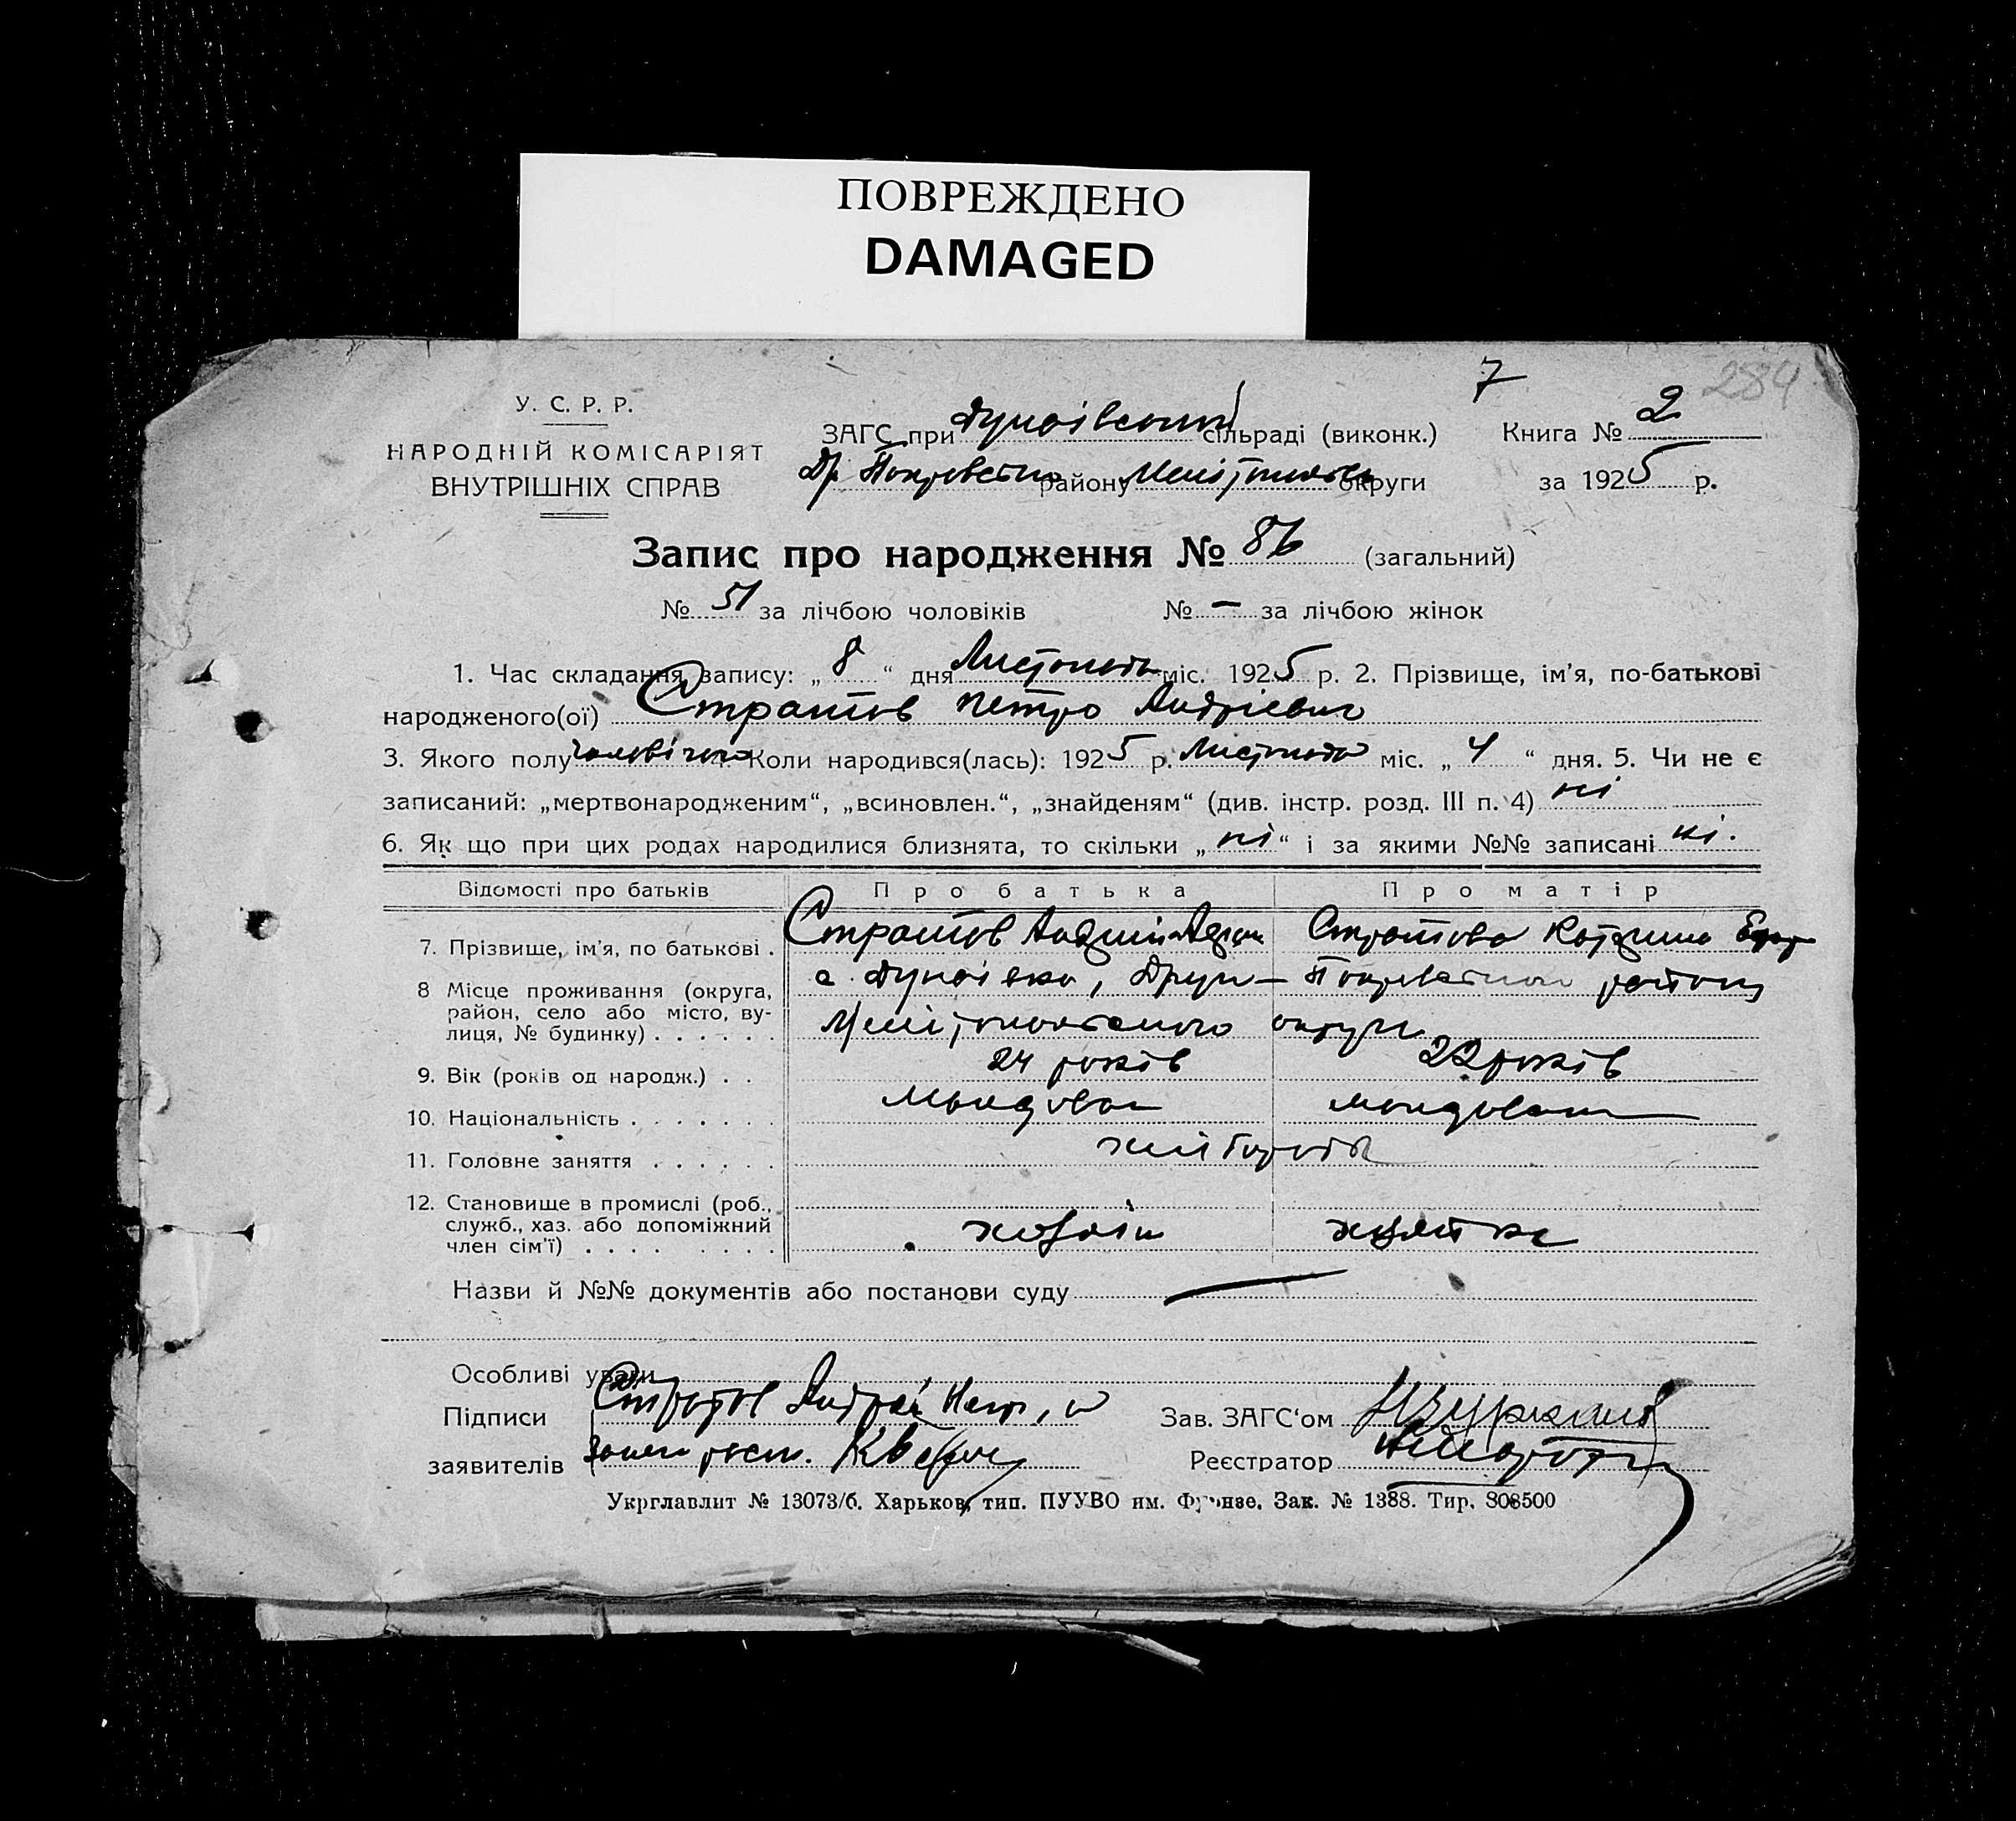 ПОВРЕЖДЕНО
DAMAGED
7
284
У. С. Р. Р.
НАРОДНІЙ КОМІСАРІЯТ
ВНУТРІШНІХ СПРАВ
ЗАГС при Дунаівській сільраді (виконк.)
Книга № 2
Др. Покровського району Мелітопольск округи
за 1925 р.
Запис про народження № 86 (загальний)
№ 51 за лічбою чоловіків № — за лічбою жінок
1. Час складання запису: „ 8 “ дня Листопада міс. 1925 р. 2. Прізвище, ім’я, по-батькові
народженого(ої) Стратов Петро Андрієвич
3. Якого полу чоловічого Коли народився(лась): 1925 р. Листопада міс. „ 4 “ дня. 5. Чи не є
записаний: „мертвонародженим“, „всиновлен.“, „знайденям“ (див. інстр. розд. III п. 4) ні
6. Як що при цих родах народилися близнята, то скільки „ ні “ і за якими №№ записані ні.
Відомості про батьків Про батька Про матір
7. Прізвище, ім’я, по батькові . Стратов Стратова Катерина
8 Місце проживання (округа, район, село або місто, вулиця, № будинку) . . . . . . с. Дунаівка, Друго-Покровського району
Мелітопольського округи
9. Вік (років од народж.) . . 24 років 22 років
10. Національність . . . . . . . молдован молдован
11. Головне заняття . . . . . . хліборобы
12. Становище в промислі (роб., служб., хаз. або допоміжний член сім’ї) . . . . . . . . . хозяін
Назви й №№ документів або постанови суду —
Особливі уваги
Підписи Стратов Андрей
Зав. ЗАГС‘ом
заявителів
Реєстратор
Укрглавлит № 13073/б. Харьков, тип. ПУУВО им. Фрунзе. Зак. № 1388. Тир. 808500